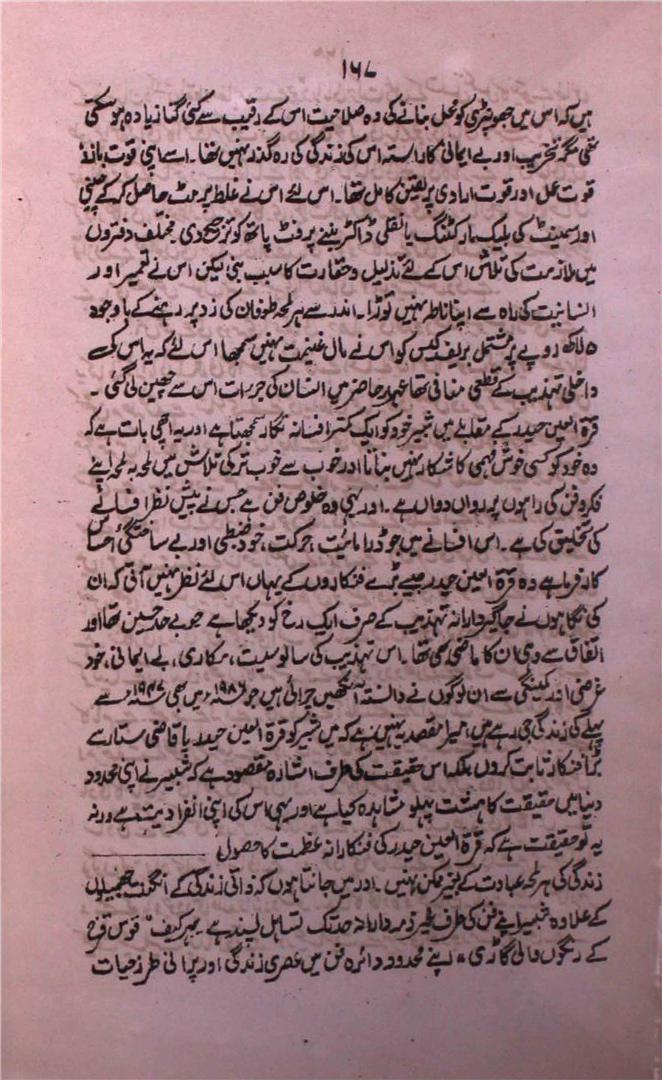 ۱۶۷
ہیں کہ اس میں جھونپڑی کو محل بنانے کی وہ صلاحیت اس کے رقیب سے کئی گنا زیادہ ہو سکتی
تھی مگر تخریب اور بے ایمانی کا راستہ اس کی زندگی کی رہ گذر نہیں تھا۔ اسے اپنی قوت بازو
قوت عمل اور قوت ارادی پر یقین کامل تھا۔ اس لئے اس نے غلط پرمٹ حاصل کر کے چینی
اور سمینٹ کی بلیک مارکٹنگ یا نقلی ڈاکٹر بننے پر فٹ پاتھ کو ترجیح دی۔ مختلف دفتروں
میں ملازمت کی تلاش اس کے لئے تذلیل و حقارت کا سبب بنی لیکن اس نے تعمیر اور
انسانیت کی راہ سے اپنا ناطہ نہیں توڑا۔ اندر سے ہر لمحہ طوفان کی زد پر رہنے کے باوجود
۵ لاکھ روپے پر مشتمل بریف کیس کو اس نے مال غنیمت نہیں سمجھا اس لئے کہ یہ اس کی
داخلی تہذیب کے قطعی منافی تھا عہد حاضر میں انسان کی جرات اس سے چھین لی گئی۔
قرۃ العین حیدر کے مقابلے میں شبیر خود کو ایک کمتر افسانہ نگار سمجھتا ہے اور یہ اچھی بات ہے کہ
وہ خود کو کسی خوش فہمی کا شکار نہیں بناتا اور خوب سے خوب تر کی تلاش میں لمحہ بہ لمحہ اپنے
فکر و فن کی راہوں پر رواں دواں ہے۔ اور یہی وہ خلوص فن ہے جس نے پیش نظر افسانے
کی تخلیق کی ہے۔ اس افسانے میں جو ڈرامائیت، حرکت، خود ضبطی اور بے ساختگی احساس
کارفرما ہے وہ قرۃ العین حیدر جیسے بڑے فنکاروں کے یہاں اس لئے نظر نہیں آتی کہ ان
کی نگاہوں نے جاگیردارانہ تہذیب کے صرف ایک رخ کو دیکھا ہے جو بے حد حسین تھا اور
اتفاق سے وہی ان کا ماضی بھی تھا۔ اس تہذیب کی سالوسیت، مکاری، بے ایمانی، خود
غرضی اور کمینگی سے ان لوگوں نے دانستہ آنکھیں چرائی ہیں جو ۱۹۸۶ء میں بھی ۱۹۴۷ء سے
پہلے کی زندگی جی رہے ہیں، میرا مقصد یہ نہیں ہے کہ میں شبیر کو قرۃ العین حیدر یا قاضی ستار سے
بڑا فنکار ثابت کروں بلکہ اس حقیقت کی طرف اشارہ مقصود ہے کہ شبیر نے اپنی محدود
دنیا میں حقیقت کا ہشت پہلو مشاہدہ کیا ہے اور یہی اس کی اپنی انفرادیت ہے ورنہ
یہ تو حقیقت ہے کہ قرۃ العین حیدر کی فنکارانہ عظمت کا حصول ـــــــــــ
زندگی کی ہر لمحہ عبادت کے بغیر ممکن نہیں۔ اور میں جانتا ہوں کہ ذاتی زندگی کے ان گنت جھمیلوں
کے علاوہ شبیر اپنے فن کی طرف غیر ذمہ دارانہ حد تک تساہل پسند ہے بہر کیف "قوس قزح
کے رنگوں والی گاڑی" اپنے محدود دائرہ فن میں عصری زندگی اور پرانی طرز حیات